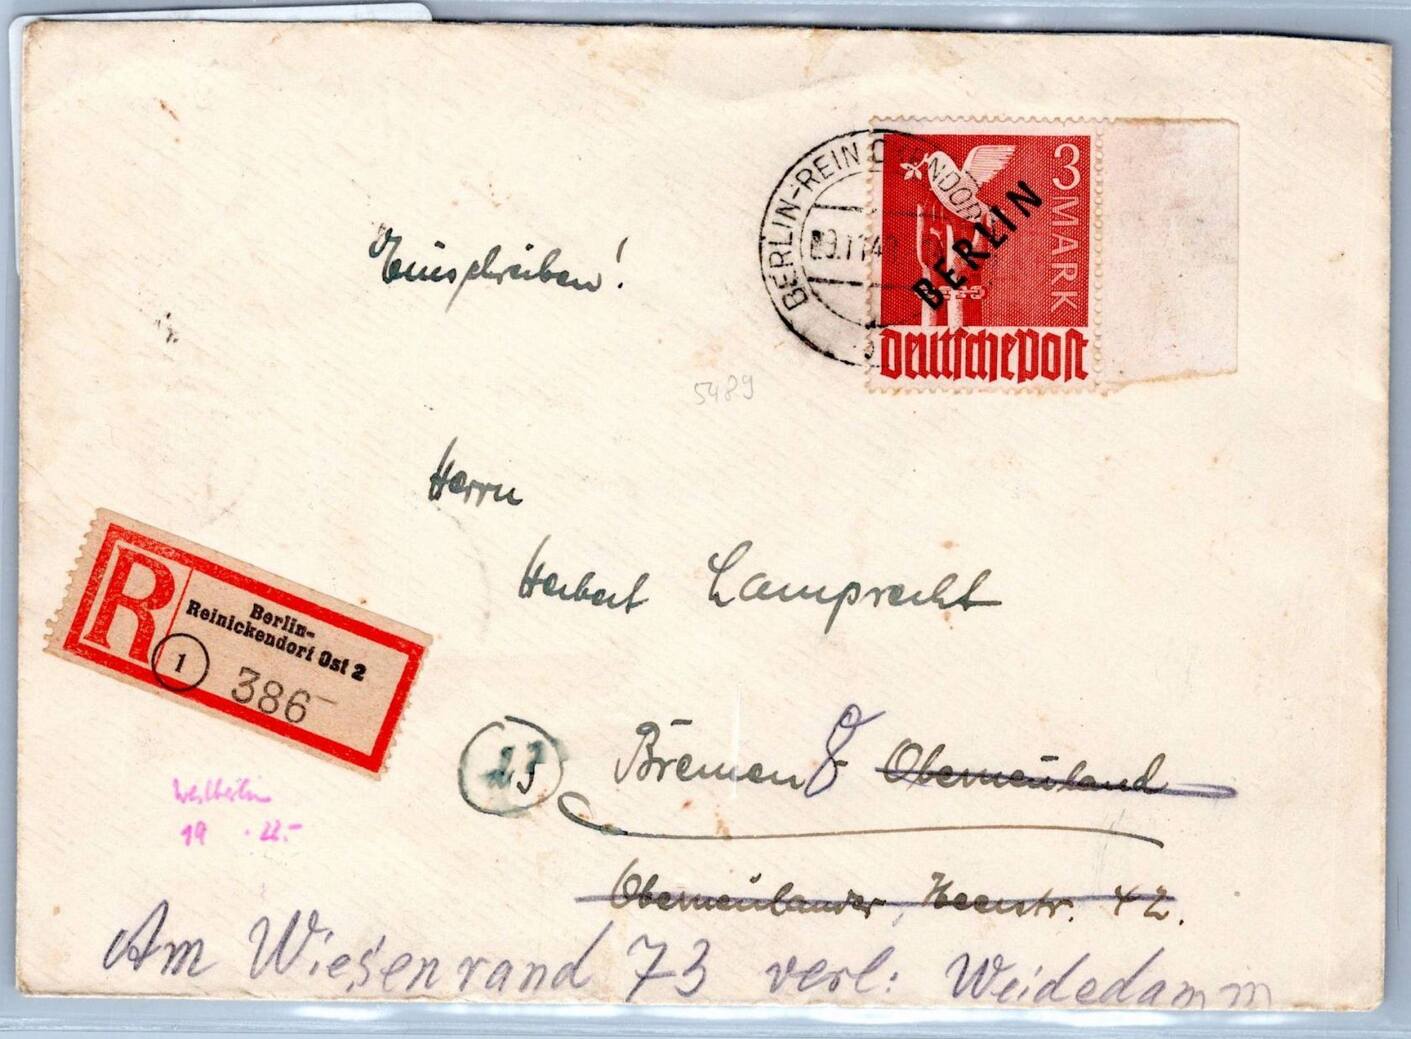 Einschreiben!
BERLIN-REINICKENDORF
3 MARK
BERLIN
Deutsche Post
5489
Herrn
Herbert Lamprecht
R
Berlin-
Reinickendorf Ost 2
1
386
23
Bremen 8 Oberneuland
Oberneulander Heerstr. 42.
Westberlin
19 . 22.-
Am Wiesenrand 73 verl: Weidedamm